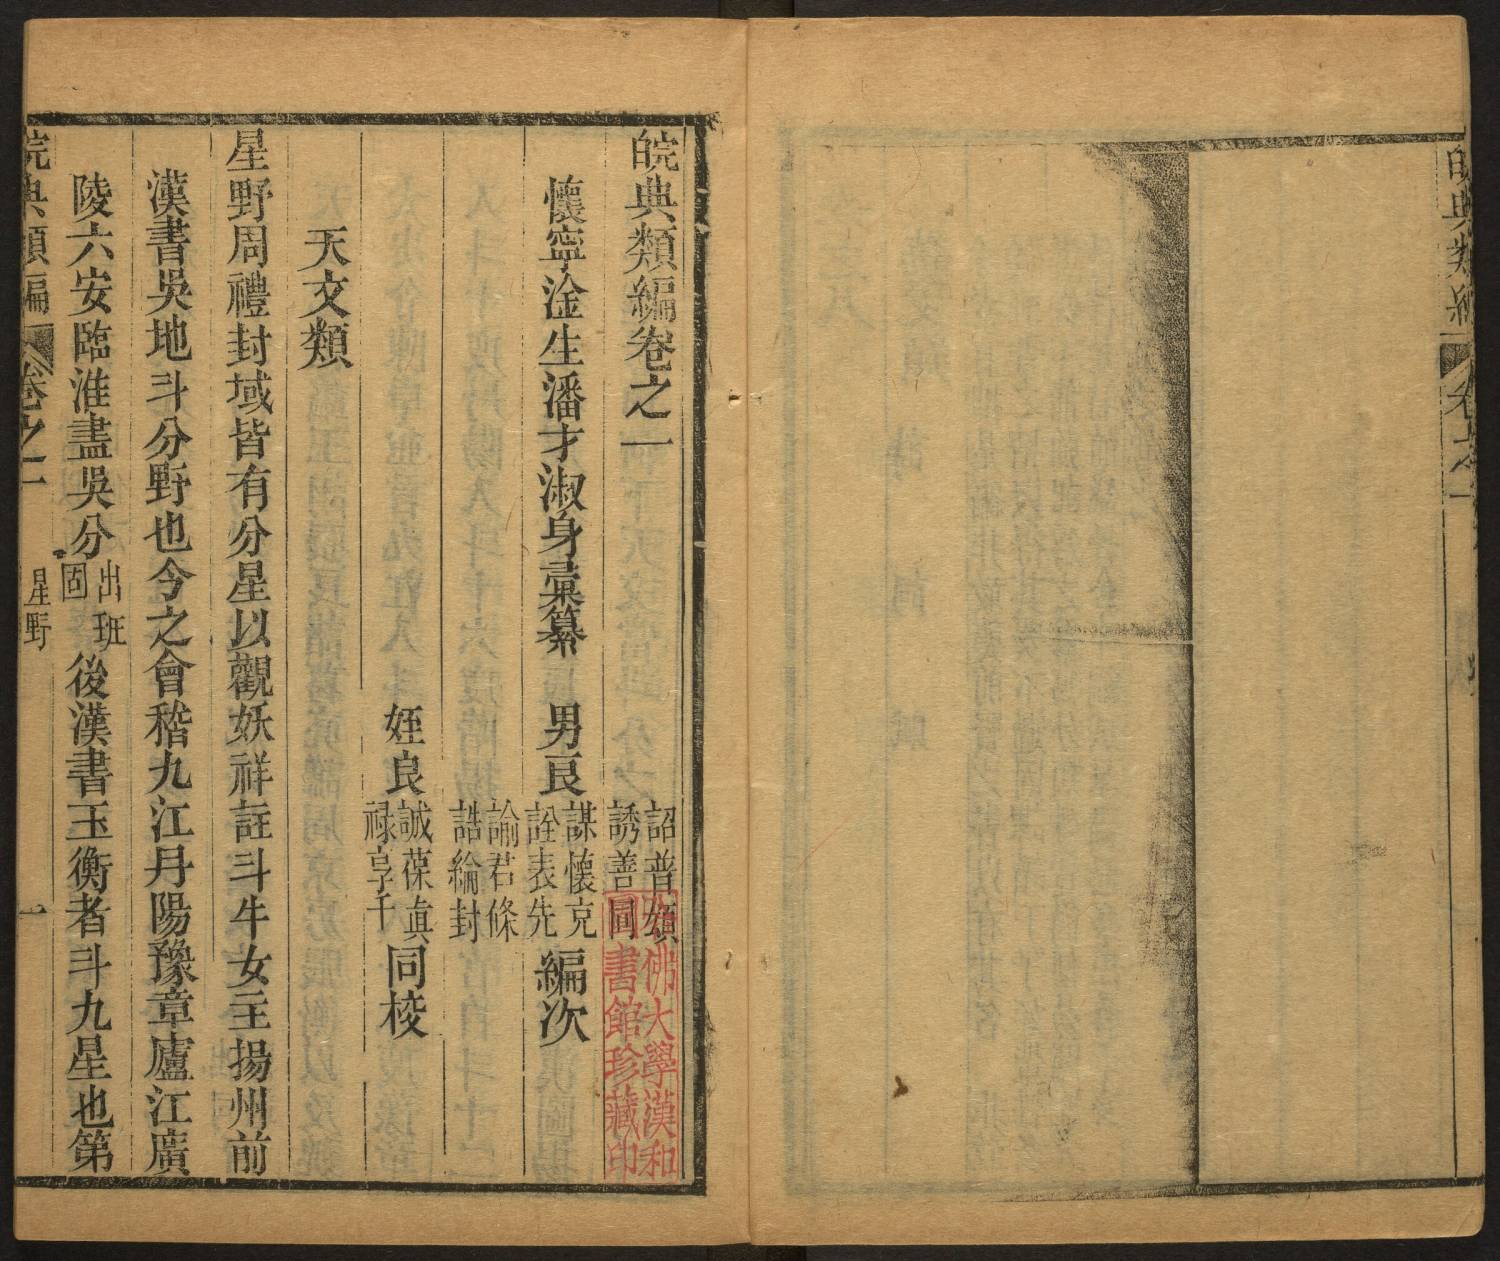 皖典類編 卷之一
皖典類編卷之一
懷寧淦生潘才淑身彙纂 男艮
詔普頫
誘善圖
謀懷克
詮表先
編次
諭君條
誥綸封
姪良
誠葆眞
祿享千
同校
天文類
星野周禮封域皆有分星以觀妖祥註斗牛女主揚州前
漢書吳地斗分野也今之會稽九江丹陽豫章廬江廣
陵六安臨淮盡吳分出班固後漢書玉衡者斗九星也第
皖典類編 卷之一 星野 一
哈佛大學漢和
圖書館珍藏印